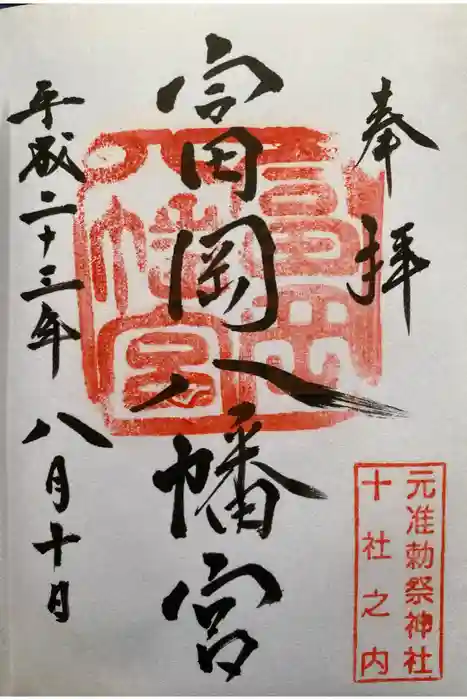 奉拝
富岡八幡宮
平成二十三年八月十日
富岡
八幡宮
元准勅祭神社
十社之内